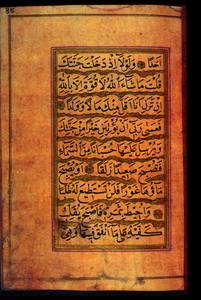 أَحَدًا وَلَوْلَا إِذْ دَخَلْتَ جَنَّتَكَ
قُلْتَ مَا شَاءَ اللَّهُ لَا قُوَّةَ إِلَّا بِاللَّهِ
إِنْ تَرَنِ أَنَا أَقَلَّ مِنْكَ مَالًا وَوَلَدًا
فَعَسَى رَبِّي أَنْ يُؤْتِيَنِ خَيْرًا مِنْ جَنَّتِكَ
وَيُرْسِلَ عَلَيْهَا حُسْبَانًا مِنَ السَّمَاءِ
فَتُصْبِحَ صَعِيدًا زَلَقًا أَوْ يُصْبِحَ
مَاؤُهَا غَوْرًا فَلَنْ تَسْتَطِيعَ لَهُ طَلَبًا
وَأُحِيطَ بِثَمَرِهِ فَأَصْبَحَ يُقَلِّبُ
كَفَّيْهِ عَلَى مَا أَنْفَقَ فِيهَا وَهِيَ